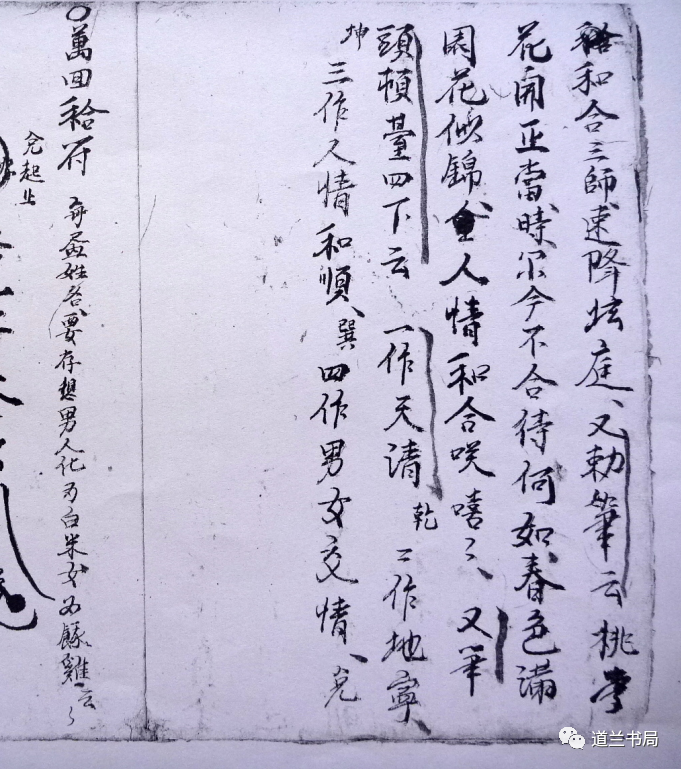 和合三師速降坛庭、又勅筆云桃李
花開正當時尔今不合待何如春色滿
園花似錦令人情和合咲嘻〻、又筆
頭頓臺四下云 一作天清 乾 二作地寧、
坤 三作人情和順、巽四作男女交情、兌
○萬回和合符 每盃姓名要存想男人化为白米女为餓雞云〻
兌起止
道兰书局